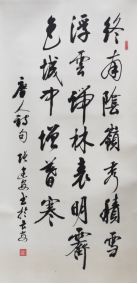 終南陰嶺秀積雪
浮雲端林表明霽
色城中增暮寒
唐人詩句
書於長安